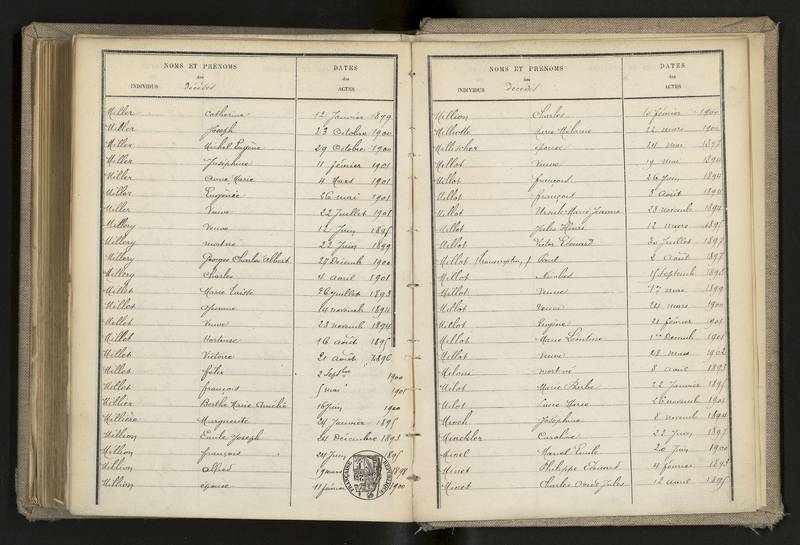 NOMS ET PRÉNOMS DATES
des des
INDIVIDUS Décédés ACTES
Miller Catherine 12 Janvier 1899
Miller Joseph 23 Octobre 1900
Miller Michel Eugène 29 Octobre 1900
Miller Joséphine 11 février 1901
Miller Anne Marie 4 Mars 1901
Miller Eugénie 26 mai 1901
Miller Veuve 22 Juillet 1901
Millery Veuve 12 Juin 1895
Millery mort né 22 Juin 1899
Millery Georges Charles Albert 28 Décemb 1900
Millery Charles 4 avril 1901
Millet Marie Louise 26 juillet 1893
Millet épouse 14 novemb 1894
Millet Veuve 23 novemb 1894
Millet Hortense 16 août 1895
Millet Victoire 21 août 1896
Millet félix 2 Septbre 1900
Millet françois 5 mai 1901
Millier Berthe Marie Amélie 16 Juin 1900
Millière Marguerite 24 Janvier 1895
Million Emile Joseph 24 Décembre 1893
Million françois 24 Juin 1895
Million Alfred 19 mars 1898
Million épouse 11 février 1900
RÉPUBLIQUE FRANÇAISE
NOMS ET PRÉNOMS DATES
des des
INDIVIDUS Décédés ACTES
Million Charles 6 février 1900
Millotte Marie Mélanie 22 mars 1900
Millischer épouse 24 mai 1897
Millot Veuve 19 mai 1894
Millot françois 26 Juin 1894
Millot françois 2 Août 1894
Millot Marie Jeanne 28 novemb 1894
Millot Jules Henri 12 mars 1895
Millot Victor Edouard 30 Juillet 1897
Millot (transcription) Paul 2 août 1897
Millot Nicolas 15 Septemb 1898
Millot Veuve 17 mai 1899
Millot Veuve 24 mars 1900
Millot Eugène 21 février 1901
Millot Marie Léontine 1er Decemb 1901
Millot Veuve 28 mars 1902
mort né 8 août 1893
Milot Marie Barbe 22 Janvier 1895
Milot Lucie Marie 26 novemb 1901
Minch Joséphine 8 novemb 1894
Caroline 22 Juin 1897
Minel Marcel Emile 20 Juin 1900
Minot Philippe Edouard 4 février 1893
Minot Charles Jules 12 avril 1895